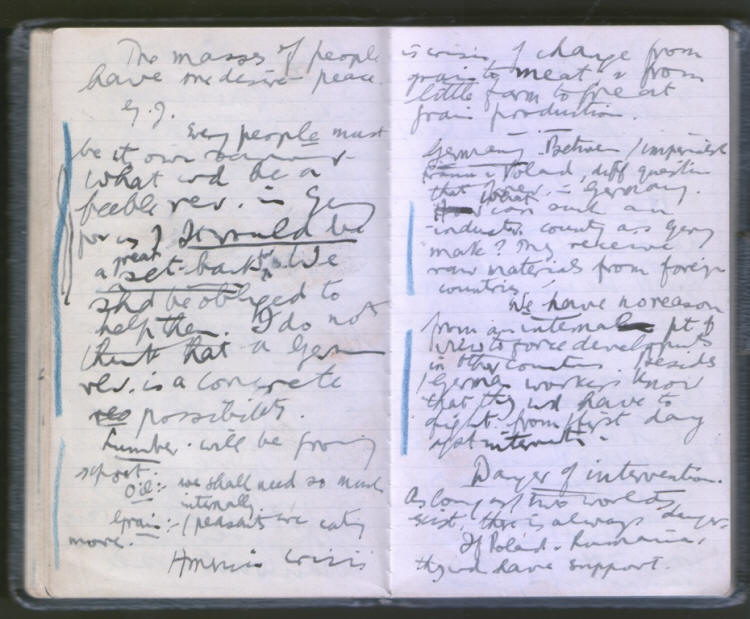 The masses of people
have one desire - peace
e.g.
Every people must
be it own
what wd be a
feeble rev. in Germ
for us? It would be
a great set-back. We
shd be obliged to
help them. I do not
think that a Germ
rev. is a concrete
possibility.
Lumber. will be
export.
Oil:- we shall need so much
internally
Grain:- / peasants are eating
more.
America crisis
is crisis of change from
grain to meat & from
little farm to great
grain production.
Germany. Between / imperialist
France & Poland, diff question
that of rev. in Germany.
What can such an
industr. country as Germ
make? They receive
raw materials from foreign
countries.
We have no reason
from an internal pt. of
view to force developments
in other countries. Besides
/ German workers know
that they wd have to
fight from first day
agst
Danger of intervention.
As long as two worlds
exist, there is always danger.
If Poland. Rumania,
they wd have support.